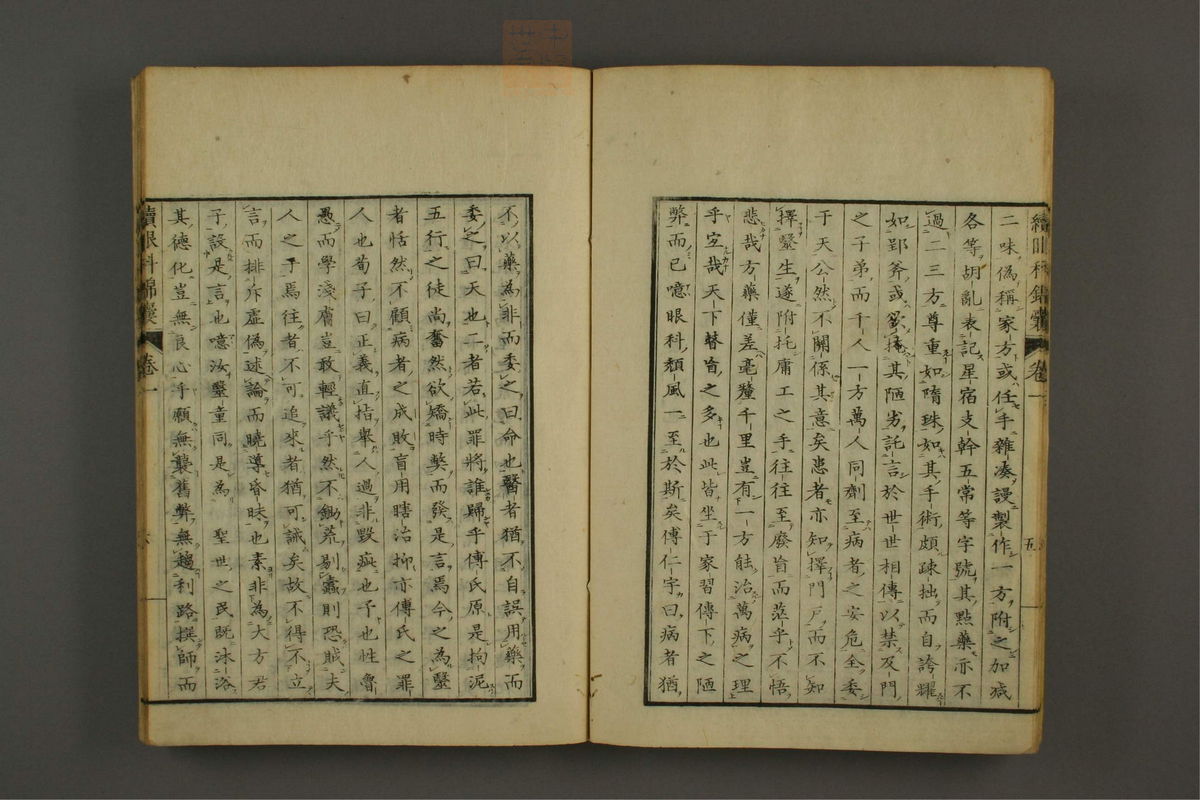 續眼科錦囊 卷一 五
二味偽稱家方或任手雜湊謾製作一方附之加減
各等胡亂表記星宿支幹五常等字號其點藥亦不
過二三方尊重如隋珠如其手術頗疎拙而自誇耀
如郢斧或掩其陋劣託言於世世相傳以禁及門
之子弟而千人一方萬人同劑至病者之安危全委
于天公然不關係其意矣患者亦知擇門戶而不知
擇醫生遂附托庸工之手往往至廢盲而茫乎不悟
悲哉方藥僅差毫釐千里豈有一方能治萬病之理
乎宜哉天下瞽盲之多也此皆坐于家習傳下之陋
弊而已噫眼科頹風一至於斯矣傅仁宇曰病者猶
不以藥為非而委之曰命也醫者猶不自誤用藥而
委之曰天也二者若此罪將誰歸乎傅氏原是拘泥
五行之徒尚奮然欲矯時弊而發是言焉今之為醫
者恬然不顧病者之成敗盲用瞎治抑亦傅氏之罪
人也荀子曰正義直指舉人過非毀疵也予也性魯
愚而學淺膚豈敢輕議乎然不鋤莠剔蠹則恐賊夫
人之子焉往者不可追來者猶可誡矣故不得不立
言而排斥虛偽述論而曉導昏昧也素非為大方君
子設是言也噫汝醫童同是為 聖世之民既沐浴
其德化豈無良心乎願無襲舊弊無趨利路撰師而
續眼科錦囊 卷一 六